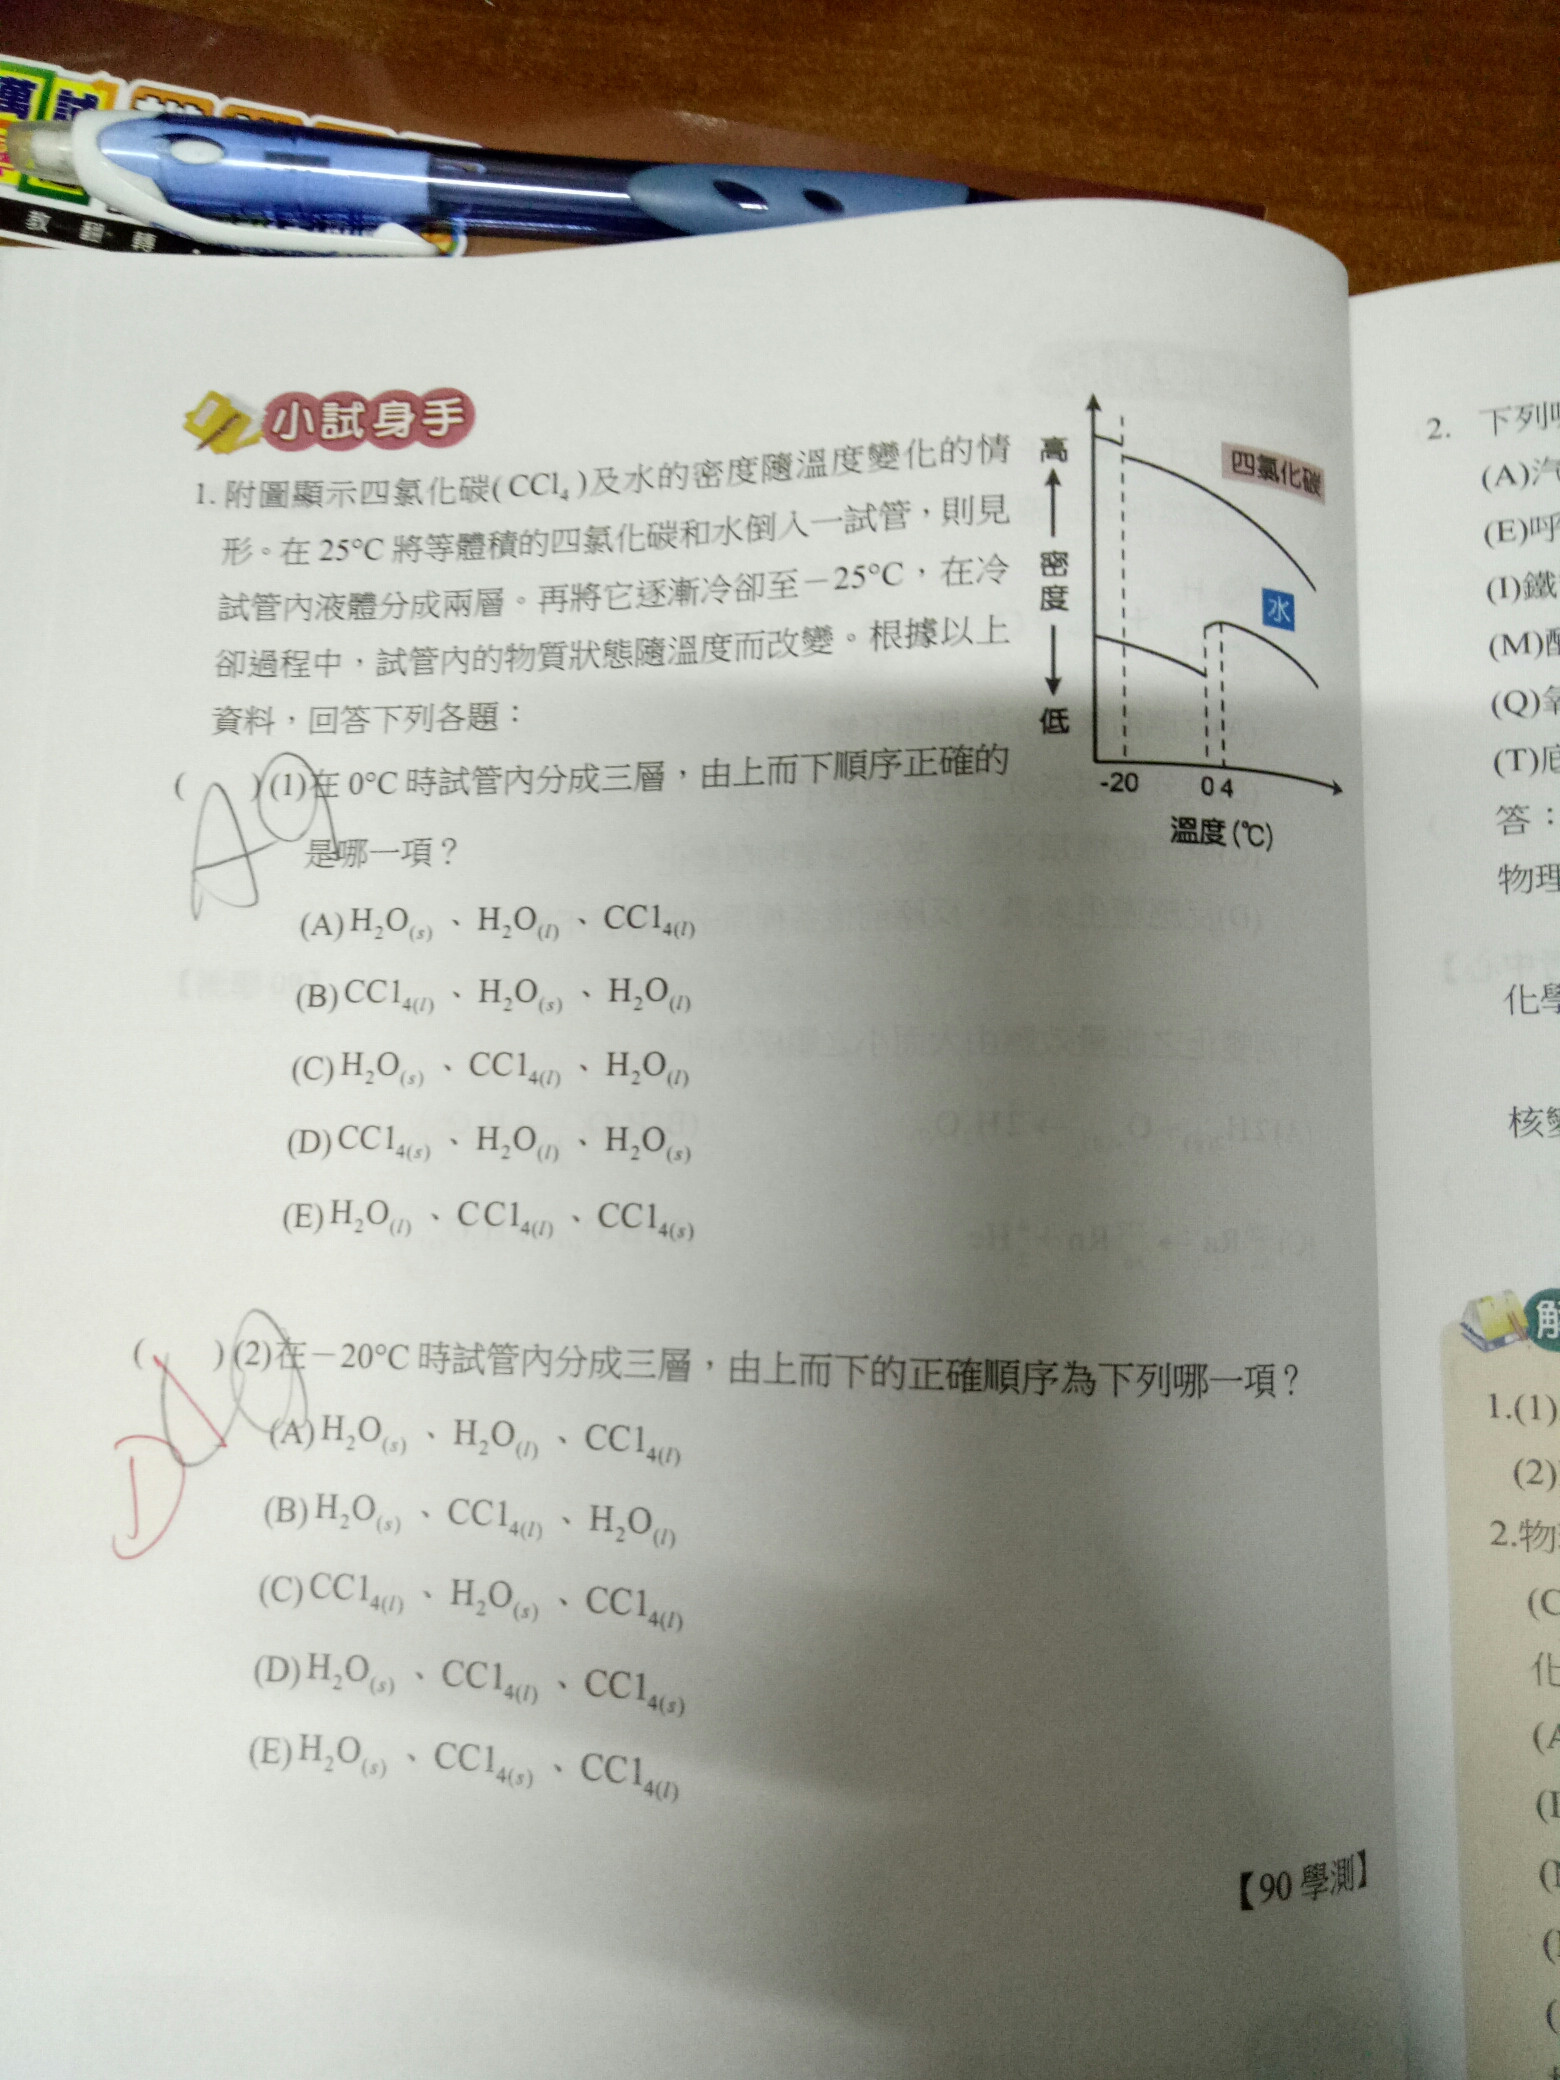 教 翻 轉
小試身手
1. 附圖顯示四氯化碳(CCl₄)及水的密度隨溫度變化的情
形。在 25°C 將等體積的四氯化碳和水倒入一試管，則見
試管內液體分成兩層。再將它逐漸冷卻至－25°C，在冷
卻過程中，試管內的物質狀態隨溫度而改變。根據以上
資料，回答下列各題：
( )(1)在 0°C 時試管內分成三層，由上而下順序正確的
是哪一項？
A
(A)H₂O₍s₎、H₂O₍l₎、CCl₄₍l₎
(B)CCl₄₍l₎、H₂O₍s₎、H₂O₍l₎
(C)H₂O₍s₎、CCl₄₍l₎、H₂O₍l₎
(D)CCl₄₍s₎、H₂O₍l₎、H₂O₍s₎
(E)H₂O₍l₎、CCl₄₍l₎、CCl₄₍s₎
高
密度
低
四氯化碳
水
-20 0 4
溫度(°C)
( )(2)在－20°C 時試管內分成三層，由上而下的正確順序為下列哪一項？
D
(A)H₂O₍s₎、H₂O₍l₎、CCl₄₍l₎
(B)H₂O₍s₎、CCl₄₍l₎、H₂O₍l₎
(C)CCl₄₍l₎、H₂O₍s₎、CCl₄₍l₎
(D)H₂O₍s₎、CCl₄₍l₎、CCl₄₍s₎
(E)H₂O₍s₎、CCl₄₍s₎、CCl₄₍l₎
【90 學測】
2. 下列
(A)汽
(E)呼
(I)鐵
(M)
(Q)氧
(T)
答：
物理
化學
核變
解
1.(1)
(2)
2.物
(C
化
(A